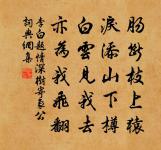 腸斷枝上猿
淚添山下樽
白雲見我去
亦為我飛翻
李白題情深樹寄象公
詞典網集